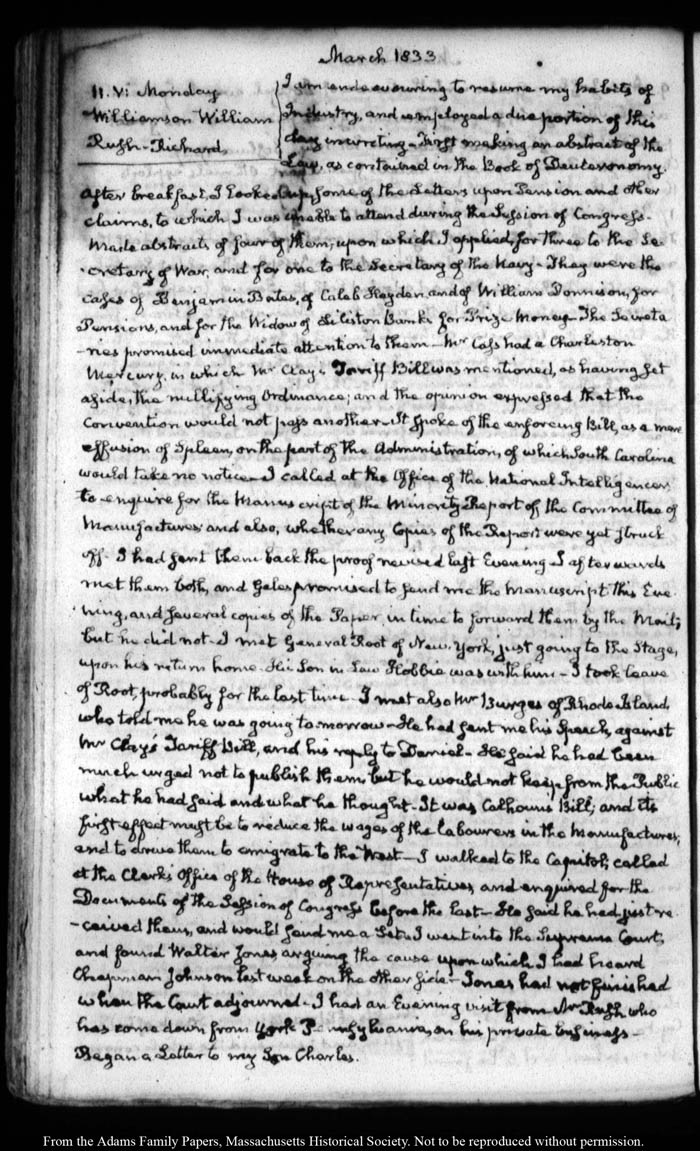 March 1833
11. VI: Monday
Williamson William
Rush-Richard
I am endeavouring to resume my habits of
Industry, and employed a due portion of this
day in writing - First making an abstract of the
Law, as contained in the Book of Deuteronomy.
After breakfast, I looked up some of the Letters upon Pension and other
claims, to which I was unable to attend during the Session of Congress.
Made abstracts of four of them, upon which I applied, for three to the Se-
-cretary of War, and for one to the Secretary of the Navy - They were the
cases of Benjamin Bates, of Caleb Hayden, and of William Donnison, for
Pensions, and for the Widow of Banks for Prize Money - The Secreta
-ries promised immediate attention to them - Mr Cass had a Charleston
Mercury, in which Mr Clay's Tariff Bill was mentioned, as having set
aside, the nullifying Ordinance; and the opinion expressed that the
Convention would not pass another - It spoke of the enforcing Bill, as a mere
effusion of Spleen, on the part of the Administration, of which South Carolina
would take no notice - I called at the Office of the National Intelligencer
to enquire for the Manuscript of the Minority Report of the Committee of
Manufactures and also, whether any Copies of the Report were yet struck
off. I had sent them back the proof revised last Evening - I afterwards
met them both, and Gales promised to send me the Manuscript this Eve
-ning, and several copies of the Paper, in time to forward them by the Mail;
but he did not - I met General Root of New York, just going to the Stage,
upon his return home. His Son in Law Hobbie was with him - I took leave
of Root, probably for the last time - I met also Mr Burges of Rhode Island,
who told me he was going to-morrow - He had sent me his Speech, against
Mr Clay's Tariff Bill, and his reply to Daniel - He said he had been
much urged not to publish them, but he would not keep from the Public
what he had said and what he thought - It was Calhoun's Bill; and its
first effect must be to reduce the wages of the labourers in the Manufactures,
and to drive them to emigrate to the West - I walked to the Capitol; called
at the Clerk's Office of the House of Representatives, and enquired for the
Documents of the Session of Congress before the last - He said he had just re
-ceived them, and would send me a Set. I went into the Supreme Court,
and found Walter Jones arguing the cause upon which I had heard
Chapman Johnson last week on the other side - Jones had not finished
when the Court adjourned - I had an Evening visit from Mr Rush who
has come down from York Pennsylvania, on his private business -
Began a Letter to my Son Charles.
From the Adams Family Papers, Massachusetts Historical Society. Not to be reproduced without permission.